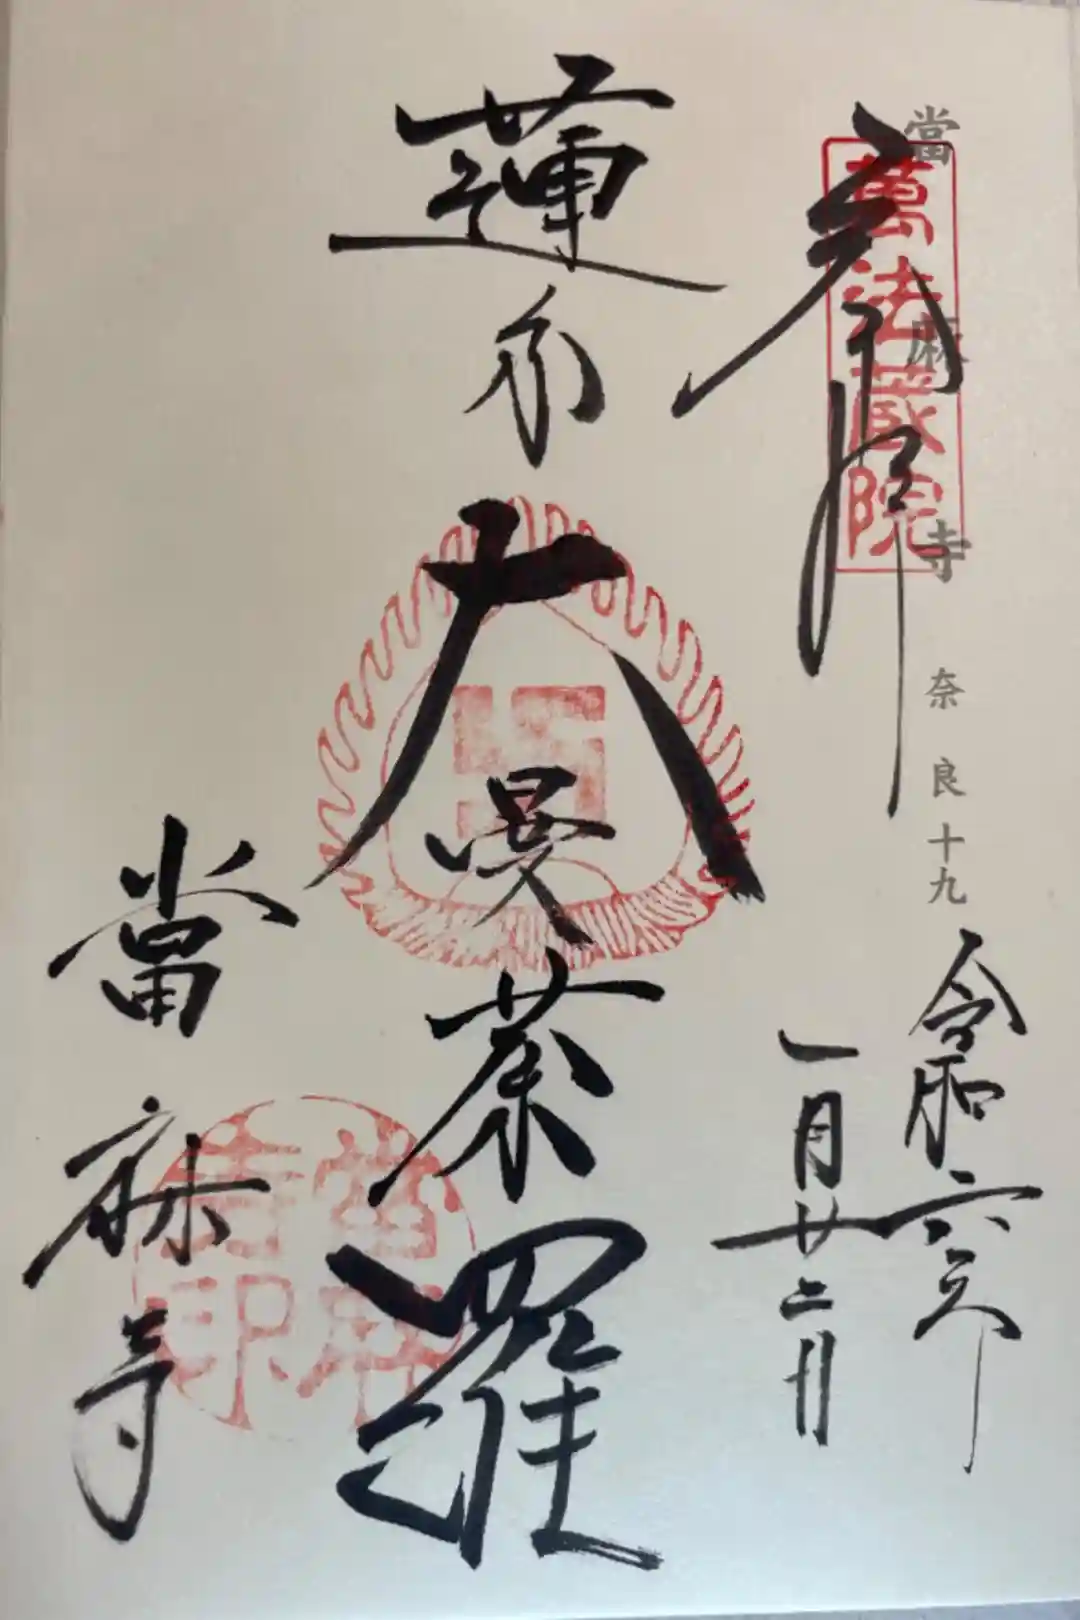 當麻寺 奈良十九
奉拝
萬法蔵院
令和六年
一月廿二日
蓮糸大曼荼羅
當麻寺
當麻寺印